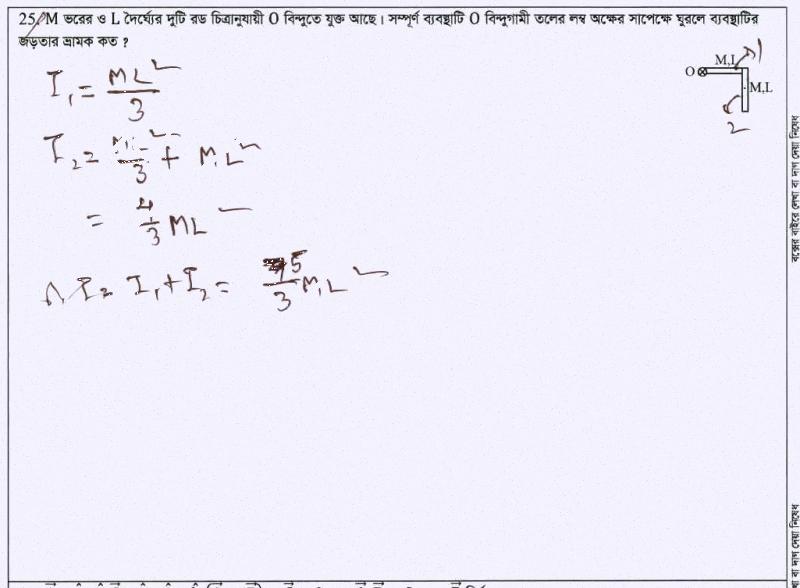 25. M ভরের ও L দৈর্ঘ্যের দুটি রড চিত্রানুযায়ী O বিন্দুতে যুক্ত আছে। সম্পূর্ণ ব্যবস্থাটি O বিন্দুগামী তলের লম্ব অক্ষের সাপেক্ষে ঘুরলে ব্যবস্থাটির
জড়তার ভ্রামক কত ?
M,L 1
O
M,L
2
I₁ = ML²/3
I₂ = ML²/3 + ML²
= 4/3 ML²
∴ I = I₁ + I₂ = 5/3 ML²
বক্সের বাইরে লেখা বা দাগ দেয়া নিষেধ
বা দাগ দেয়া নিষেধ